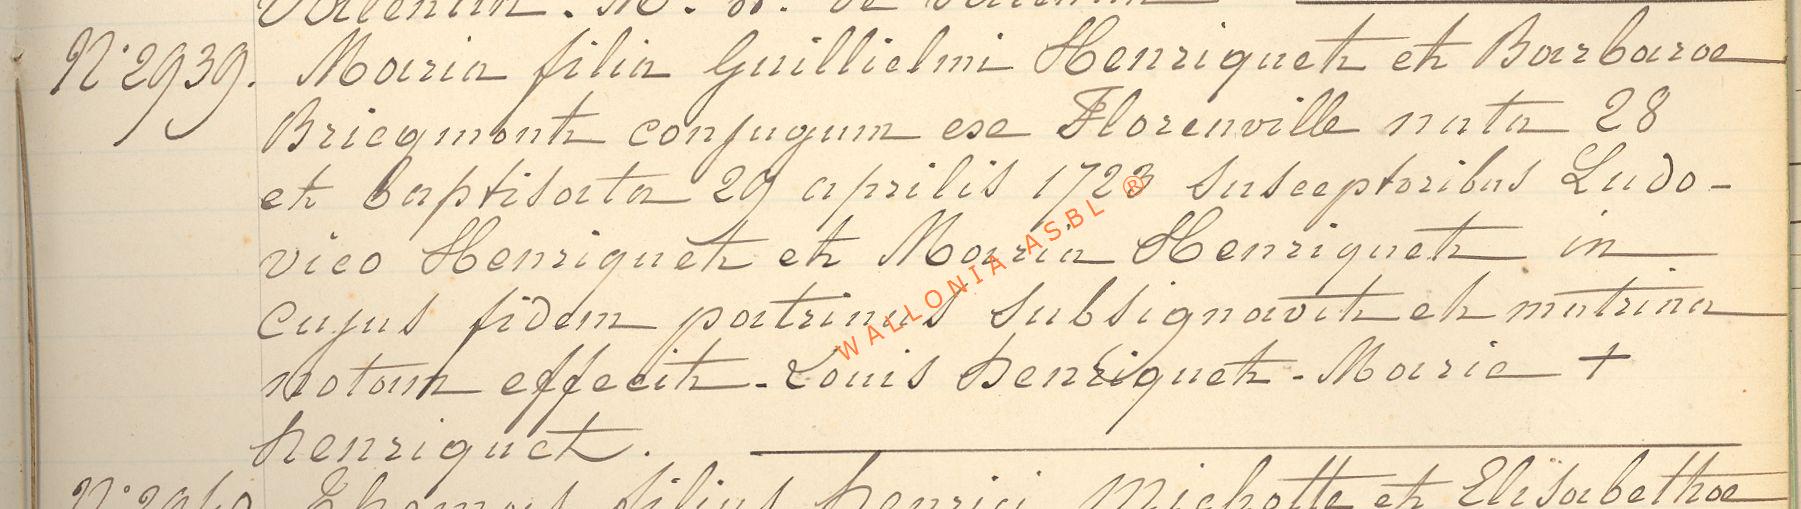 Valentin. M. N. de Valentin
N° 2939. Maria filia Guillielmi Henriquet et Barbarae
Bricqmont conjugum exe Florenville nata 28
et baptisata 29 aprilis 1723 susceptoribus Ludo-
vico Henriquet et Maria Henriquet in
cujus fidem patrinus subsignavit et matrina
notam effecit. Louis henriquet - Marie +
henriquet.
N° 2940 Thomas filius henrici Michotte et Elisabethae
WALLONIA ASBL ®